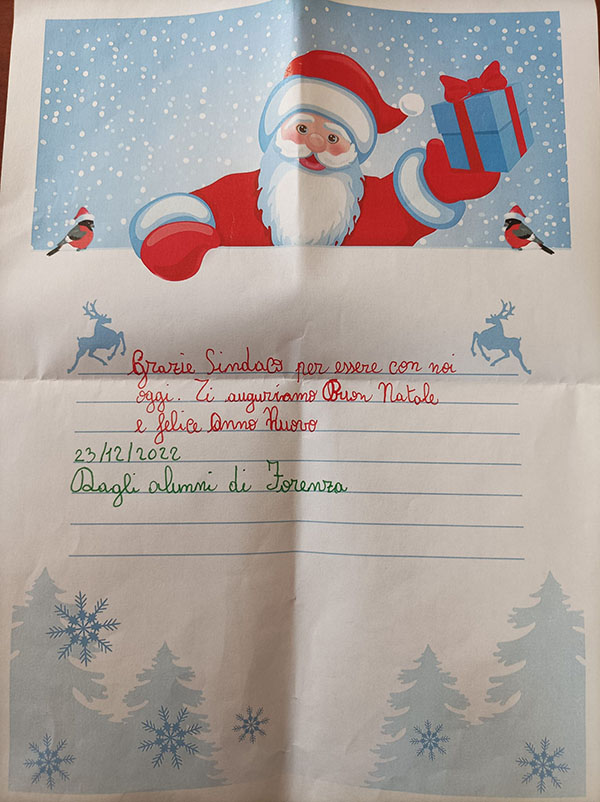 Grazie Sindaco per essere con noi
oggi. Ti auguriamo Buon Natale
e felice Anno Nuovo
23/12/2022
Dagli alunni di Forenza